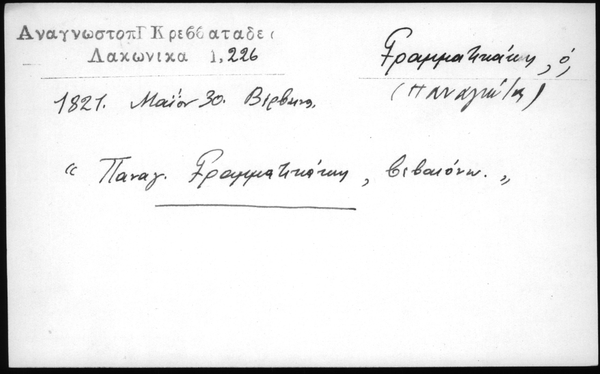 ΑναγνωστοπΓ Κρεββαταδες
Λακωνικα 1, 226
Γραμματικάκης, ὁ,
(Παναγιώτης)
1821. Μαΐου 30. Βέρβενα.
" Παναγ. Γραμματικάκης, βεβαιόνω. "